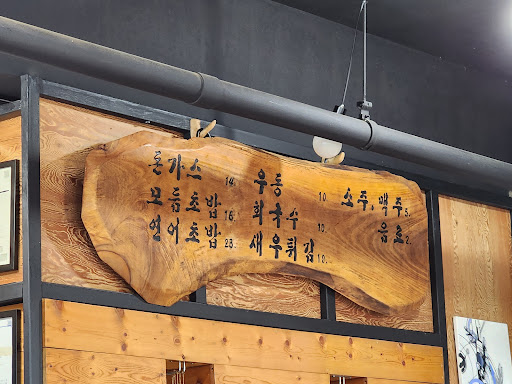 돈가스 14.
모듬초밥 16.
연어초밥 23.
우동 10
회국수 10.
새우튀김 10.
소주, 맥주 5.
음료 2.